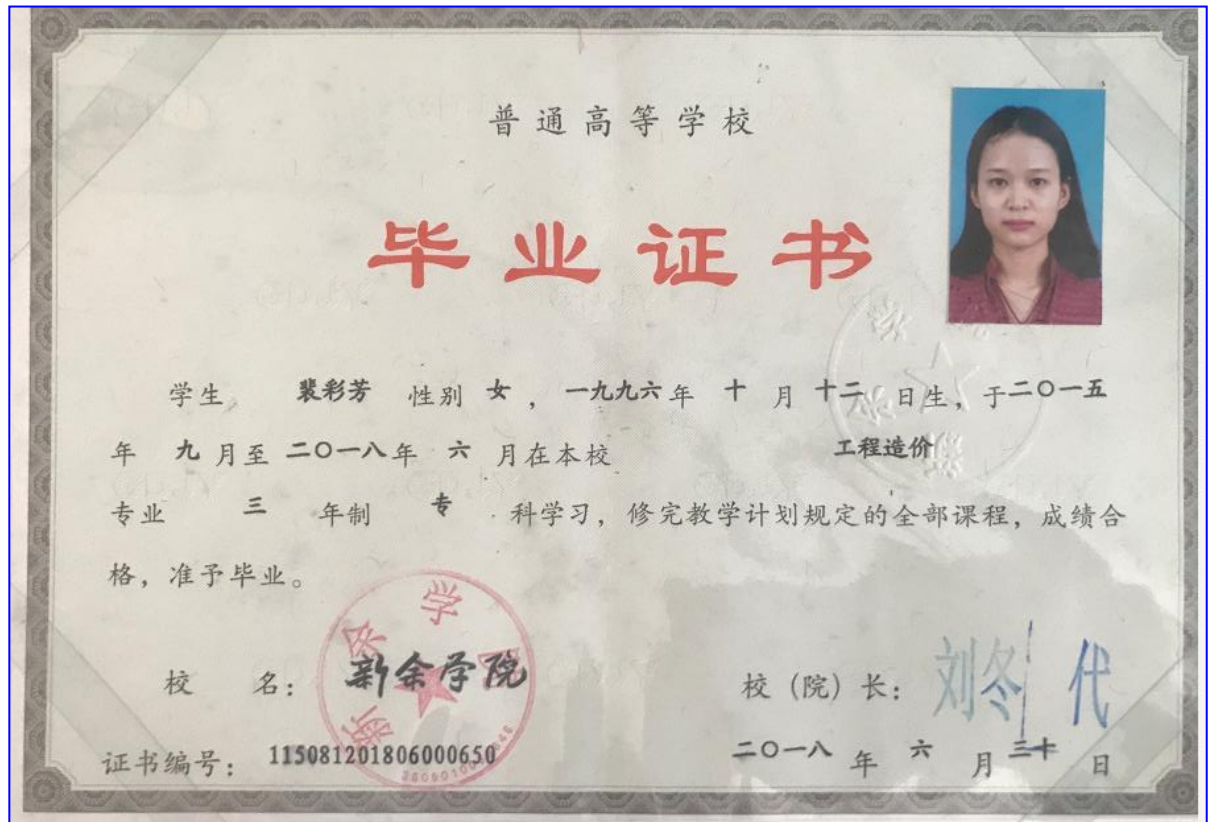 普通高等学校
毕业证书
学生 裴彩芳 性别 女 ，一九九六年 十 月 十二 日生，于二〇一五
年 九 月至 二〇一八年 六 月在本校 工程造价
专业 三 年制 专 科学习，修完教学计划规定的全部课程，成绩合
格，准予毕业。
校 名： 新余学院
校（院）长： 刘冬 代
证书编号： 115081201806000650
二〇一八 年 六 月 三十 日
新余学院